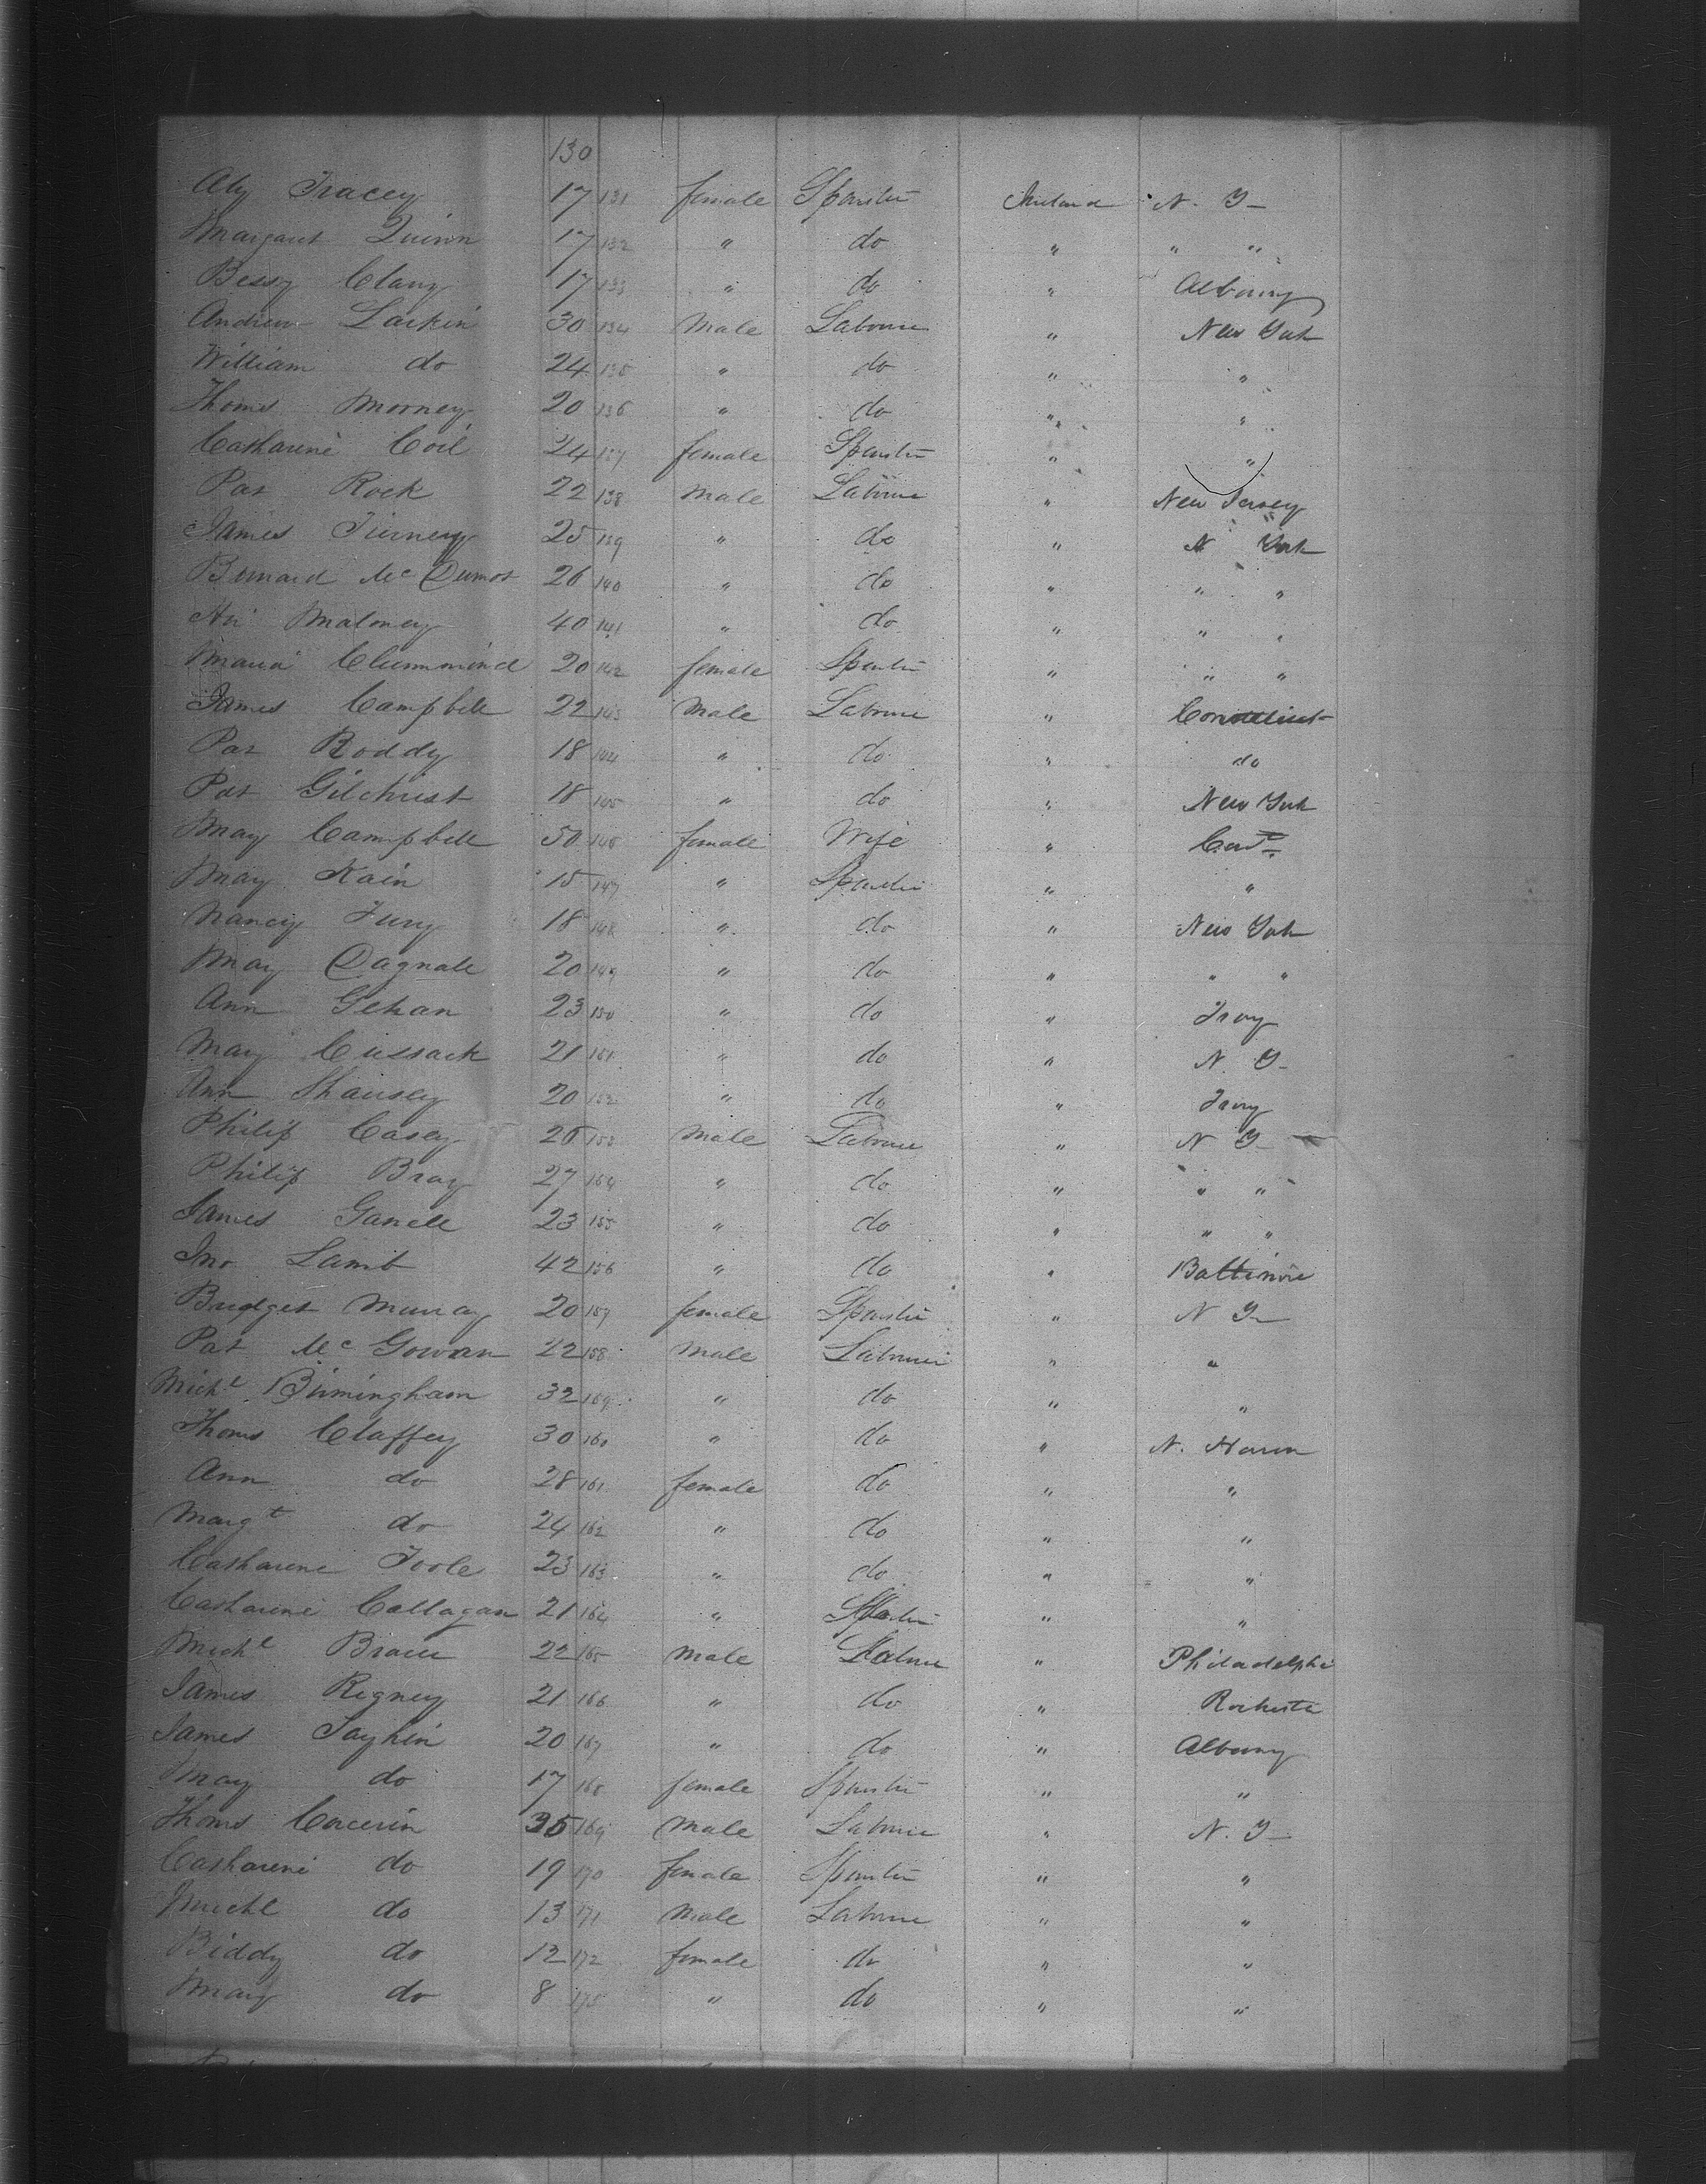 130
Aly Tracey 17 131 female Spinster Ireland N. Y
Margaret Quinn 17 132 " do " " "
Bessy Clany 17 133 " do " Albany
Andrew Larkin 30 134 Male Labourer " New York
William do 24 135 " do " "
Thoms Morney 20 136 " do " "
Catharine Coil 24 137 female Spinster " "
Pat Rock 22 138 Male Labourer " New Jersey
James Tierney 25 139 " do " N York
Bernard McDermot 26 140 " do " " "
Maloney 40 141 " do " " "
Maria Clummind 20 142 female Spinster " " "
James Campbell 22 143 Male Labourer "
Pat Roddy 18 144 " do " do
Pat Gilchrist 18 145 " do " New York
Mary Campbell 50 146 female Wife "
Mary Kain 15 147 " Spinster " "
Nancy Fury 18 148 " do " New York
Mary Dagnall 20 149 " do " " "
Ann Gehan 23 150 " do " Troy
Mary Cussack 21 151 " do " N. Y
Ann 20 152 " do " Troy
Philip Casey 26 153 Male Labourer " N Y
Philip Bray 27 154 " do " " "
James 23 155 " do " " "
Jno Lamb 42 156 " do " Baltimore
Bridget Murray 20 157 female Spinster " N Y
Pat McGowan 22 158 Male Labourer " "
Michl Birmingham 32 159 " do " "
Thoms Claffey 30 160 " do " N. Haven
Ann do 28 161 female do " "
Margt do 24 162 " do " "
Catharine Toole 23 163 " do " "
Catharine Callagan 21 164 " Spinster " "
Michl 22 165 Male Labourer " Philadelphi
James Rigney 21 166 " do " Rochester
James 20 167 " do " Albany
Mary do 17 168 female Spinster " "
Thoms 35 169 Male Labourer " N. Y
Catharine do 19 170 female Spinster " "
Michl do 13 171 Male Labourer " "
Biddy do 12 172 female do " "
Mary do 8 173 " do " "